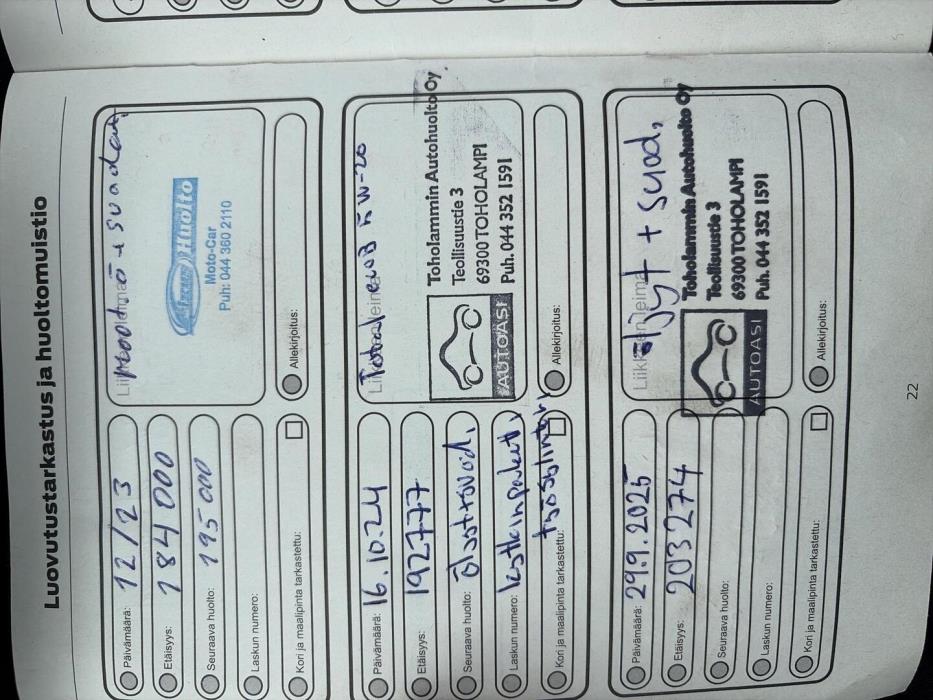 Luovutustarkastus ja huoltomuistio
Päivämäärä: 12/23
Etäisyys: 184000
Seuraava huolto: 195000
Laskun numero:
Kori ja maalipinta tarkastettu:
+ suodatt.
Huolto
Moto-Car
Puh: 044 360 2110
Allekirjoitus:
Päivämäärä: 16.10.24
Etäisyys: 192777
Seuraava huolto:
Laskun numero:
Kori ja maalipinta tarkastettu:
5W-20
AUTOASI
Toholammin Autohuolto Oy
Teollisuustie 3
69300 TOHOLAMPI
Puh. 044 352 1591
Allekirjoitus:
Päivämäärä: 29.9.2025
Etäisyys: 203274
Seuraava huolto:
Laskun numero:
Kori ja maalipinta tarkastettu:
öljyt + suod.
AUTOASI
Toholammin Autohuolto Oy
Teollisuustie 3
69300 TOHOLAMPI
Puh. 044 352 1591
Allekirjoitus:
22